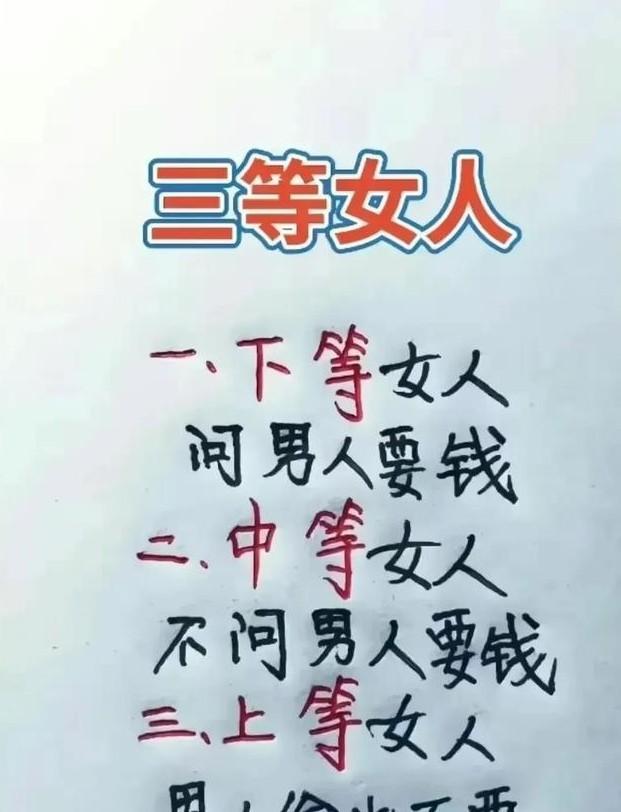 三等女人
一、下等女人
问男人要钱
二、中等女人
不问男人要钱
三、上等女人